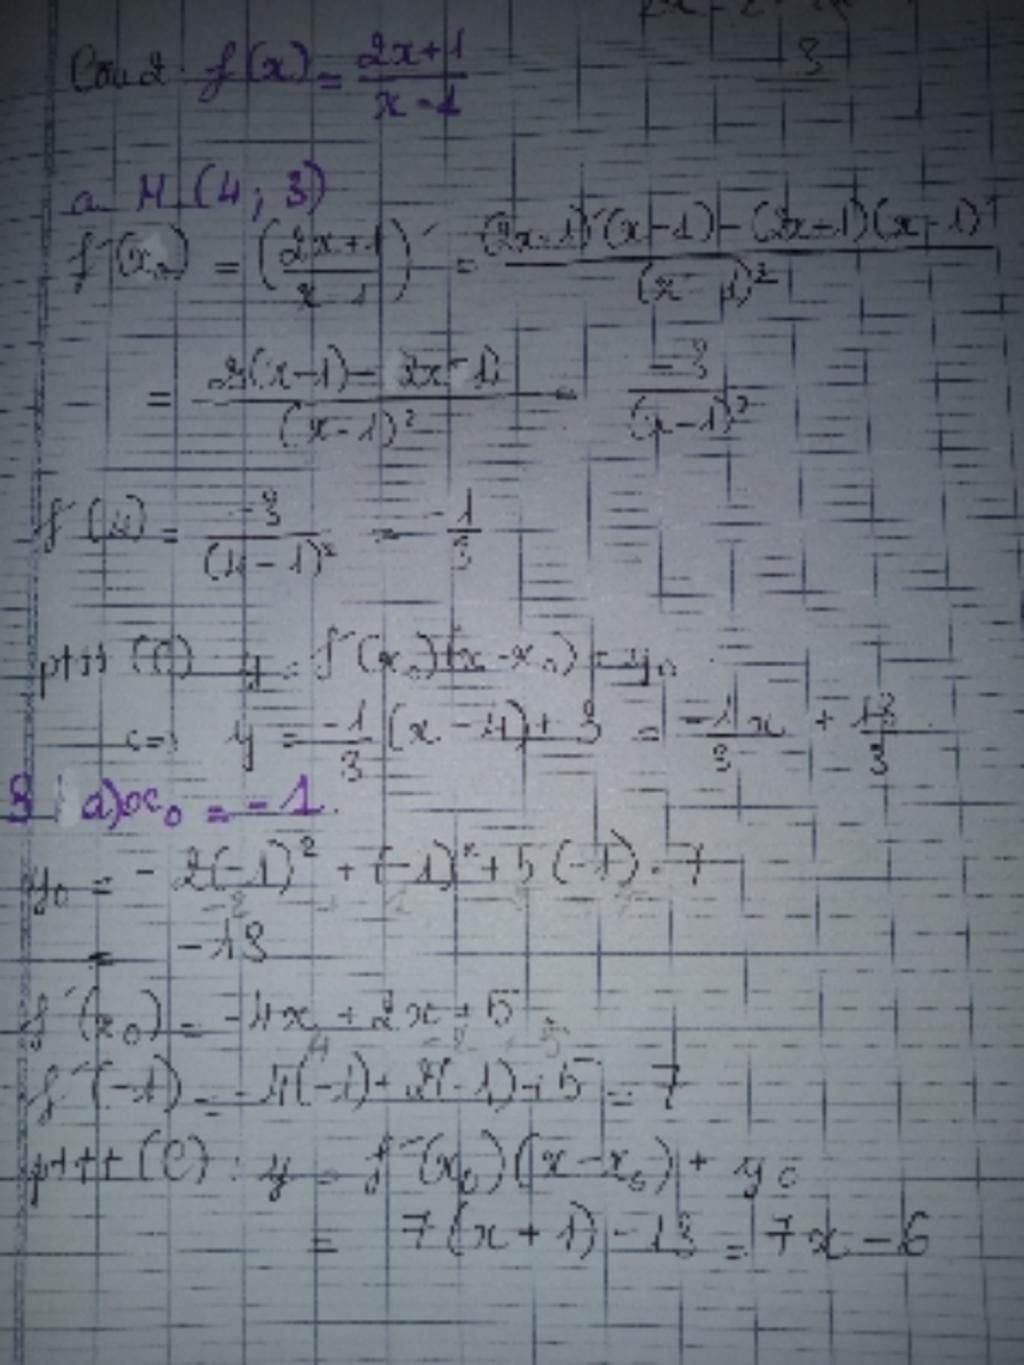 Câu 2 f(x) = (2x+1)/(x-1)
a. M (4; 3)
f'(x₀) = ((2x+1)/(x-1))' = ((2x+1)'(x-1) - (2x+1)(x-1)')/(x-1)²
= (2(x-1) - 2x-1)/(x-1)² = -3/(x-1)²
f'(4) = -3/(4-1)² = -1/3
pttt (C) y = f'(x₀)(x-x₀) + y₀
<=> y = -1/3 (x-4) + 3 = -1/3 x + 13/3
3 a) x₀ = -1
y₀ = -2(-1)² + (-1)² + 5(-1) - 7
= -13
f'(x₀) = -4x + 2x + 5
f'(-1) = -4(-1) + 2(-1) + 5 = 7
pttt (C) : y = f'(x₀)(x-x₀) + y₀
= 7(x+1) - 13 = 7x - 6